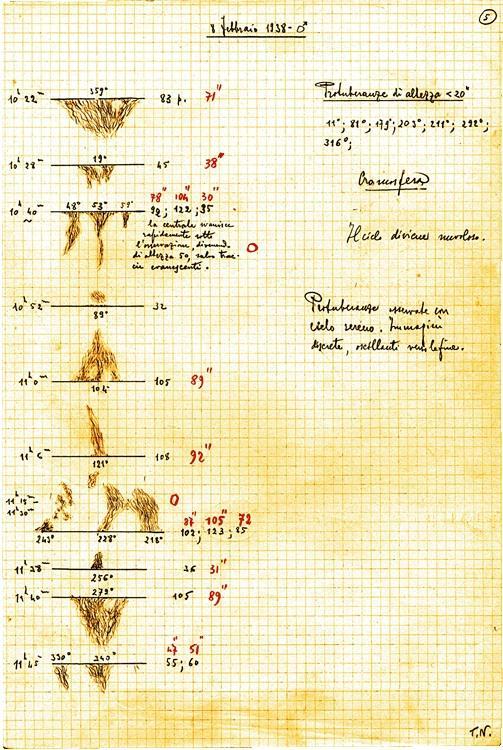 5
8 Febbraio 1938 - ♂
10h 22m 359° 83 p. 71"
10h 28m 19° 45 38"
78" 104" 30"
10h 40m 48° 53° 59° 92; 122; 35
la centrale svanisce
rapidamente sotto
l'osservazione, divenendo
di altezza 50, salvo trac-
cie evanescenti.
O
10h 52m 89° 32
11h 0m 104° 105 89"
11h 6m 121° 108 92"
11h 15m O
11h 30m 87" 105" 72
242° 228° 218° 102; 123; 85
11h 38m 256° 36 31"
11h 40m 279° 105 89"
47" 51"
11h 45m 330° 340° 55; 60
Protuberanze di altezza < 20"
11°; 81°; 179°; 203°; 211°; 292°;
316°;
Cromosfera
Il cielo diviene nuvoloso.
Protuberanze osservate con
cielo sereno. Immagini
discrete, oscillanti verso la fine.
T.N.